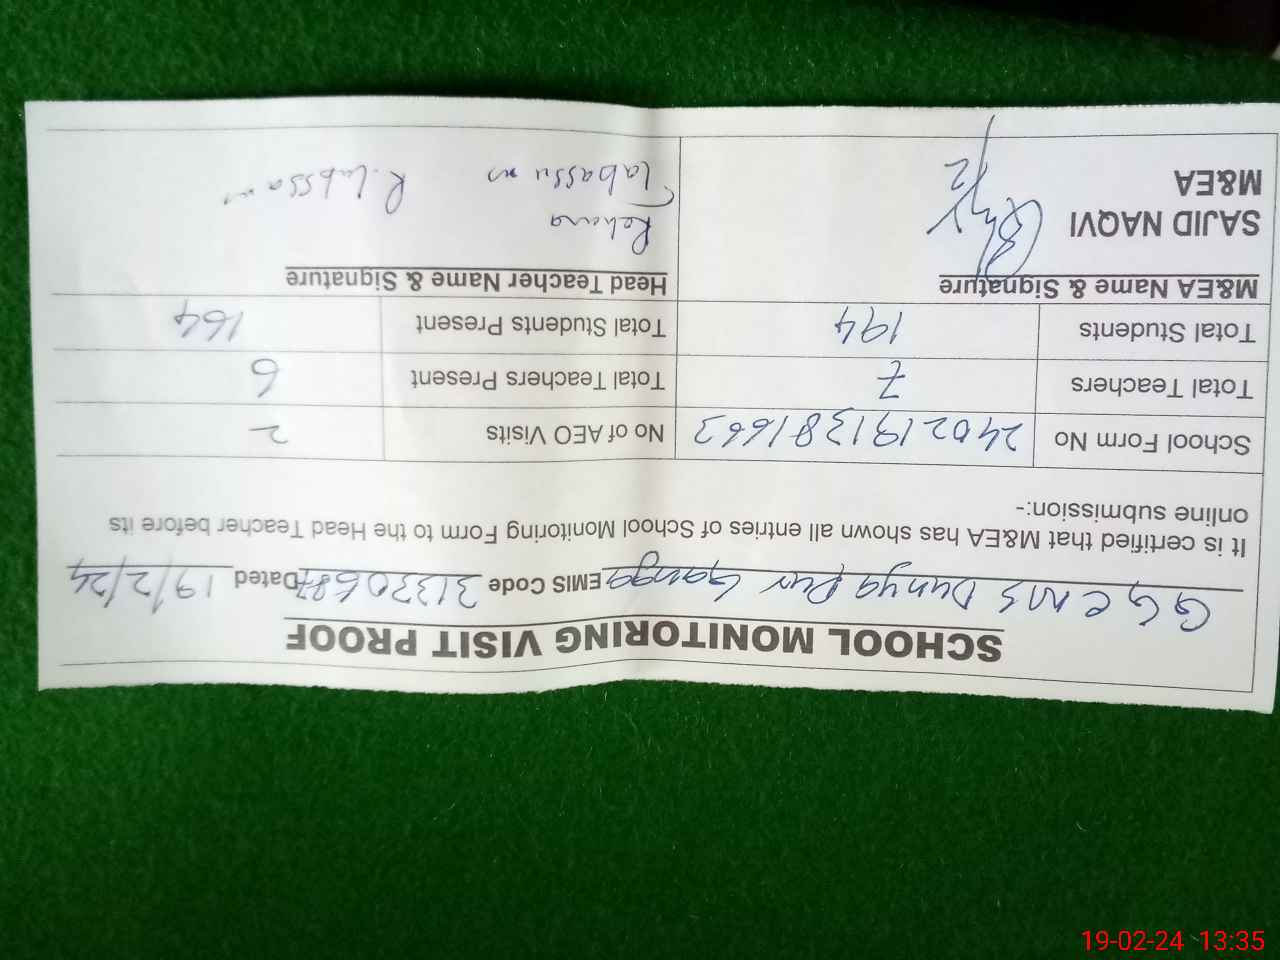 SCHOOL MONITORING VISIT PROOF
GGCMS Dunya Pur Ganga EMIS Code 31330687 Dated 19/2/24
It is certified that M&EA has shown all entries of School Monitoring Form to the Head Teacher before its
online submission:-
School Form No 2402191381663 No of AEO Visits 2
Total Teachers 7 Total Teachers Present 6
Total Students 194 Total Students Present 164
M&EA Name & Signature Head Teacher Name & Signature
SAJID NAQVI Rehana
M&EA Tabassum R.Tabssam
19-02-24 13:35